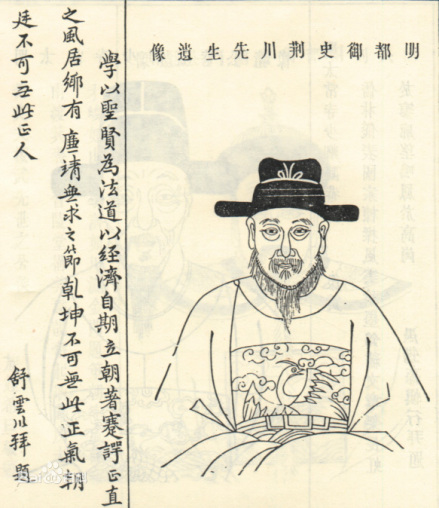 明都御史荊川先生遺像
學以聖賢為法道以經濟自期立朝著蹇諤正直
之風居鄉有廉靖無求之節乾坤不可無此正氣朝
廷不可无此正人
舒雲川拜題